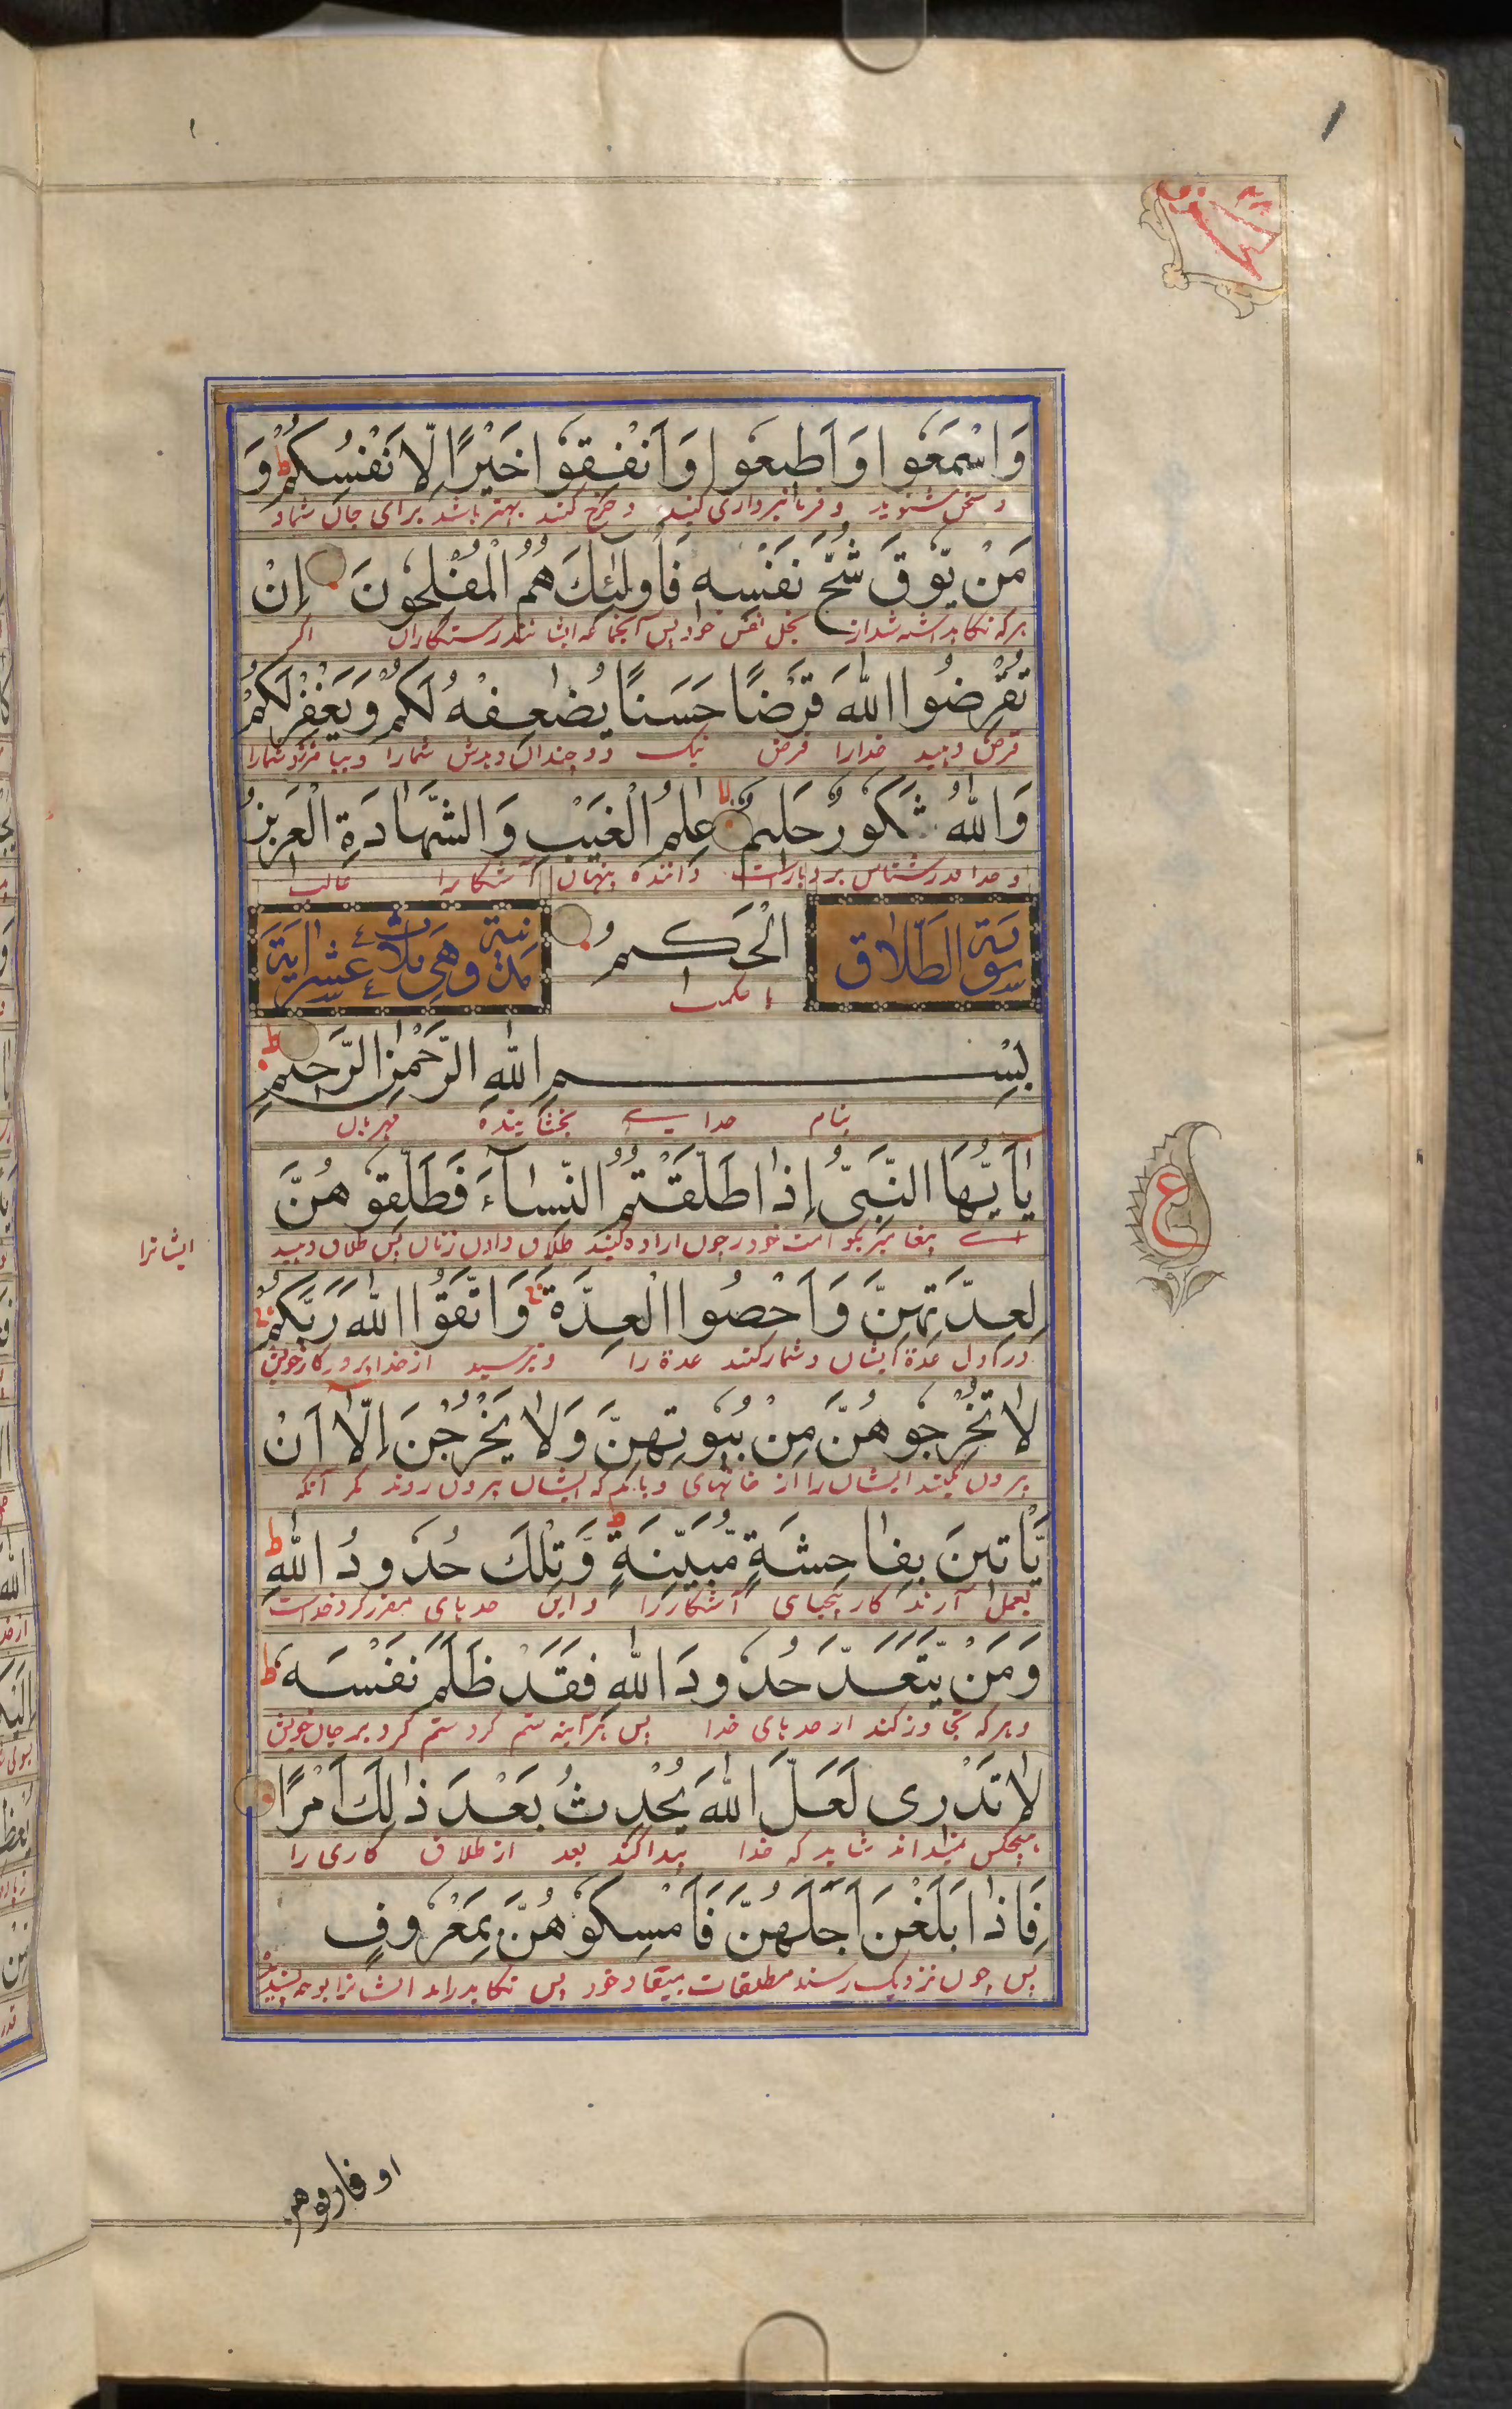 وَاسْمَعُوا وَاَطِيعُوا وَاَنْفِقُوا خَيْرًا لِّاَنْفُسِكُمْ ط وَ
و سخن شنوید و فرمانبرداری کنید و خرج کنید بهتر باشد برای جان شما و
مَنْ يُّوقَ شُحَّ نَفْسِهٖ فَاُولٰئِكَ هُمُ الْمُفْلِحُونَ اِنْ
هرکه نگاهداشته شد از بخل نفس خود پس آنجماعه ایشانند رستگاران اگر
تُقْرِضُوا اللّٰهَ قَرْضًا حَسَنًا يُضٰعِفْهُ لَكُمْ وَيَغْفِرْ لَكُمْ
قرض دهید خدارا قرض نیک دو چندان دهدش شمارا و بیامرزد شمارا
وَاللّٰهُ شَكُورٌ حَلِيمٌ لا عٰلِمُ الْغَيْبِ وَالشَّهَادَةِ الْعَزِيزُ
و خدا قدرشناس بردبارست داننده پنهان آشکارا غالب
سورة الطلاق
الْحَكِيمُ
با حکمت
مدنية وهي ثلاث عشر اية
بِسْمِ اللّٰهِ الرَّحْمٰنِ الرَّحِيمِ ط
بنام خدای بخشاینده مهربان
ع
يٰاَيُّهَا النَّبِيُّ اِذَا طَلَّقْتُمُ النِّسَآءَ فَطَلِّقُوهُنَّ
اے پیغامبر بگو امت خود را چون اراده کنید طلاق دادن زنان پس طلاق دهید
ایشانرا
لِعِدَّتِهِنَّ وَاَحْصُوا الْعِدَّةَ وَاتَّقُوا اللّٰهَ رَبَّكُمْ
در اول عدة ایشان و شمار کنند عدة را و بترسید از خدا پروردگار خویش
لَا تُخْرِجُوهُنَّ مِنْ بُيُوتِهِنَّ وَلَا يَخْرُجْنَ اِلَّآ اَنْ
بیرون مکنید ایشان را از خانهای و باید که ایشان بیرون روند مگر آنکه
يَّاْتِينَ بِفَاحِشَةٍ مُّبَيِّنَةٍ ط وَّتِلْكَ حُدُودُ اللّٰهِ ط
بعمل آرند کار بیحیای آشکار را و این حدهای مقرر کرد خداست
وَمَنْ يَّتَعَدَّ حُدُودَ اللّٰهِ فَقَدْ ظَلَمَ نَفْسَهٗ ط
و هرکه تجاوز کند از حدهای خدا پس هر آینه ستم کرد ستم کرد بر جان خویش
لَا تَدْرِى لَعَلَّ اللّٰهَ يُحْدِثُ بَعْدَ ذٰلِكَ اَمْرًا
هیچکس نمیداند شاید که خدا پیدا کند بعد از طلاق کاری را
فَاِذَا بَلَغْنَ اَجَلَهُنَّ فَاَمْسِكُوهُنَّ بِمَعْرُوفٍ
پس چون نزدیک رسند مطلقات بمیعاد خود پس نگاهدارید ایشانرا بوجه پسندیده
او فارقوهن